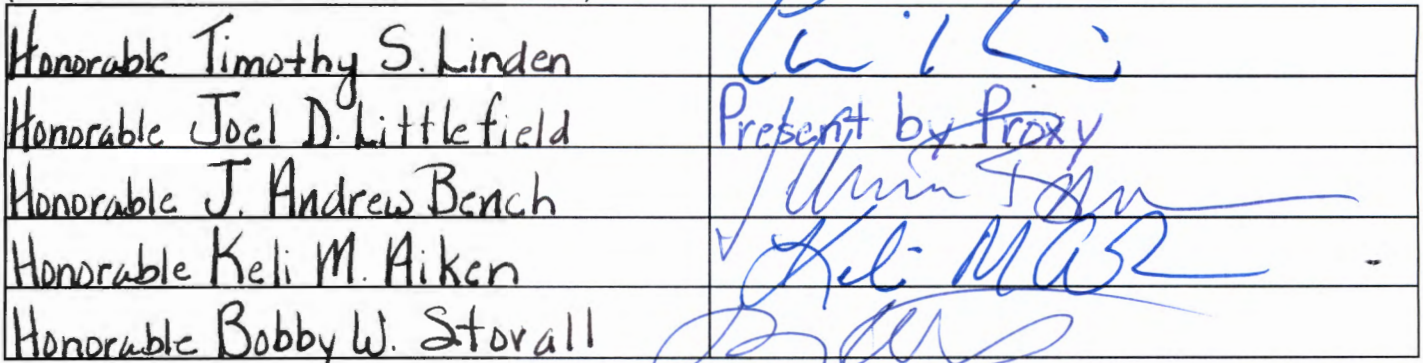 Honorable Timothy S. Linden
Honorable Joel D. Littlefield Present by Proxy
Honorable J. Andrew Bench
Honorable Keli M. Aiken Keli M
Honorable Bobby W. Stovall